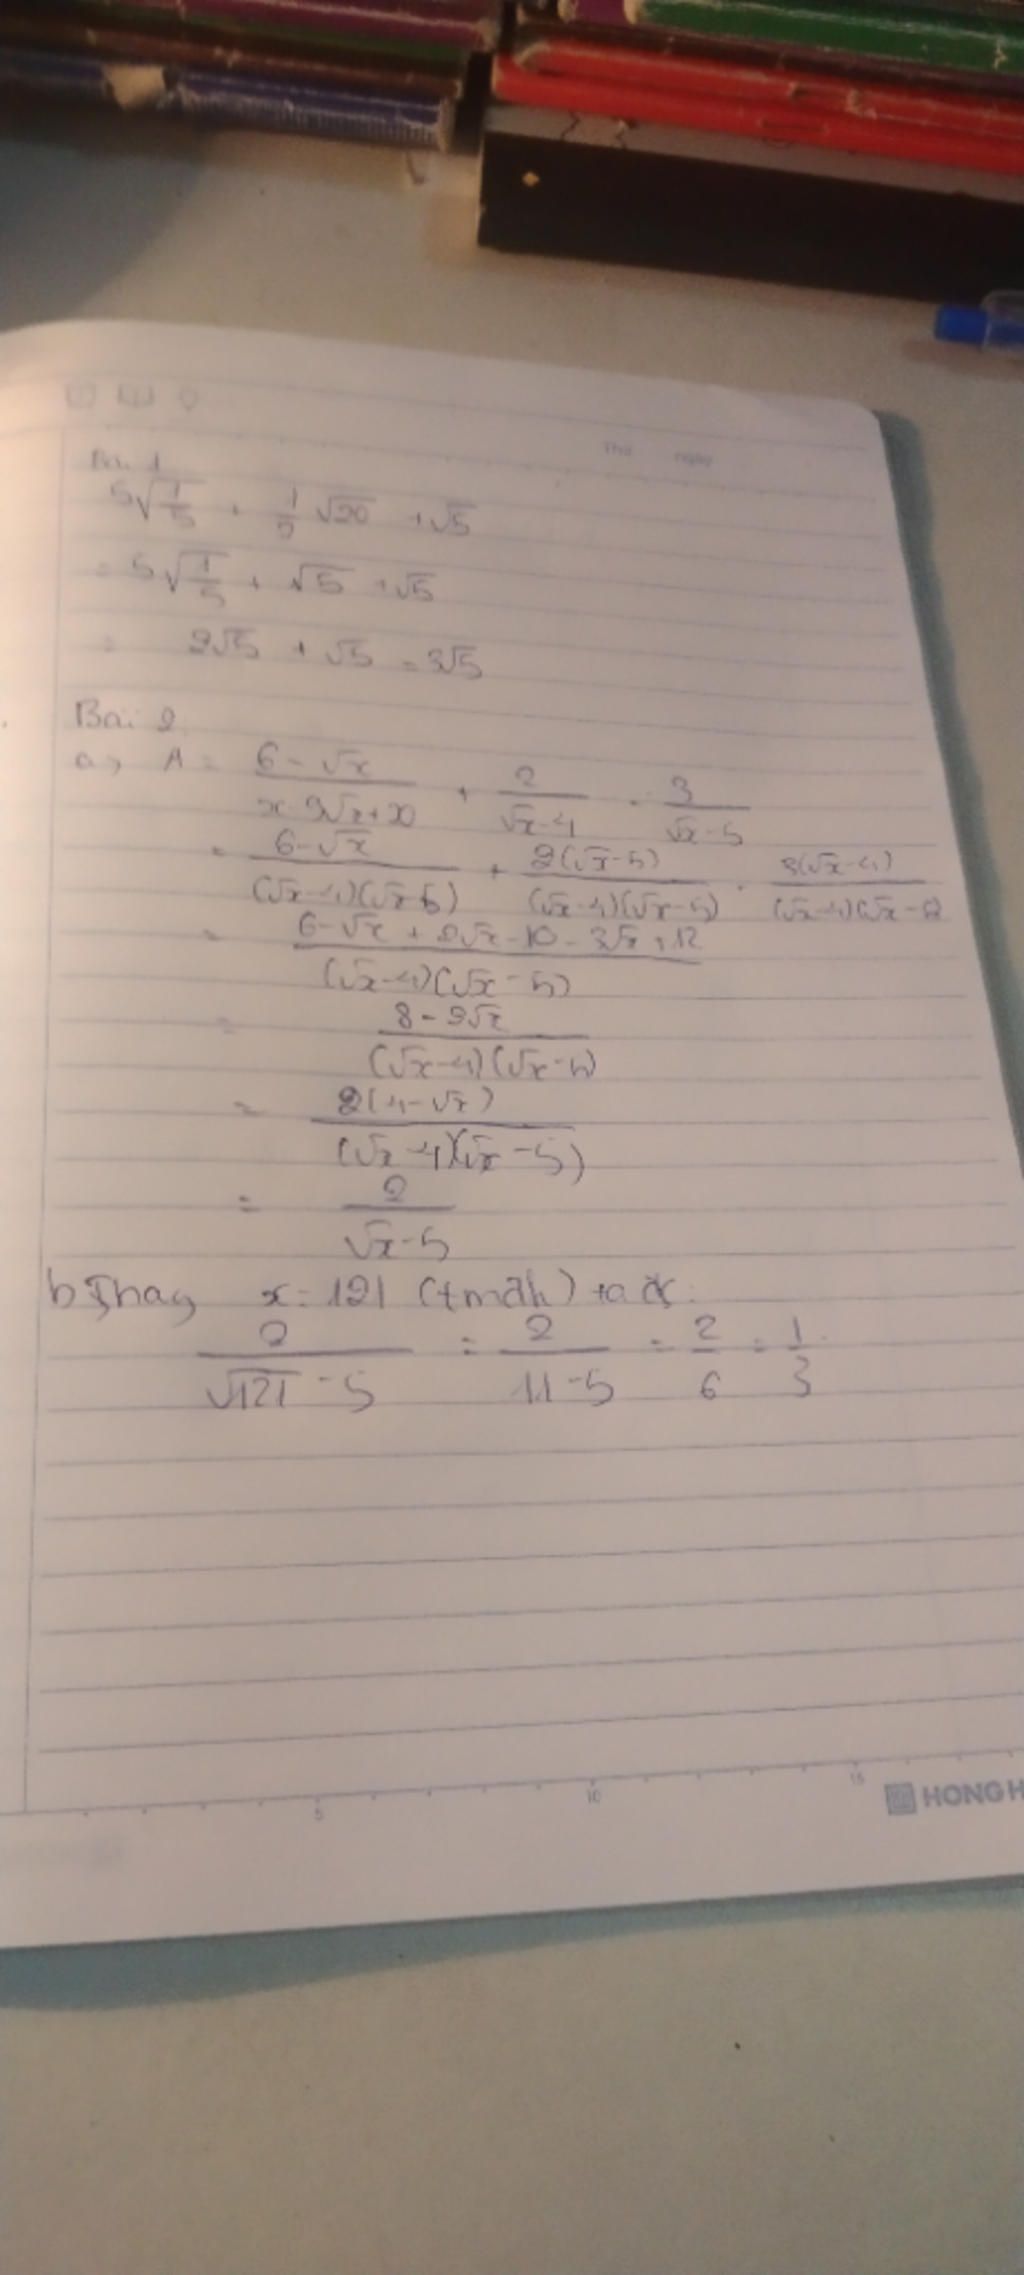 Thứ ngày
Bài 1
5√(1/5) + 1/2 √20 + √5
= 5√(1/5) + √5 + √5
= 2√5 + √5 = 3√5
Bài 2
a, A = (6 - √x)/(x - 9√x + 20) + 2/(√x - 4) - 3/(√x - 5)
= (6 - √x)/((√x - 4)(√x - 5)) + 2(√x - 5)/((√x - 4)(√x - 5)) - 3(√x - 4)/((√x - 4)(√x - 5))
= (6 - √x + 2√x - 10 - 3√x + 12)/((√x - 4)(√x - 5))
= (8 - 2√x)/((√x - 4)(√x - 5))
= 2(4 - √x)/((√x - 4)(√x - 5))
= 2/(√x - 5)
b, Thay x = 121 (tmđk) ta đc:
2/(√121 - 5) = 2/(11 - 5) = 2/6 = 1/3
5 10 15
HONG H